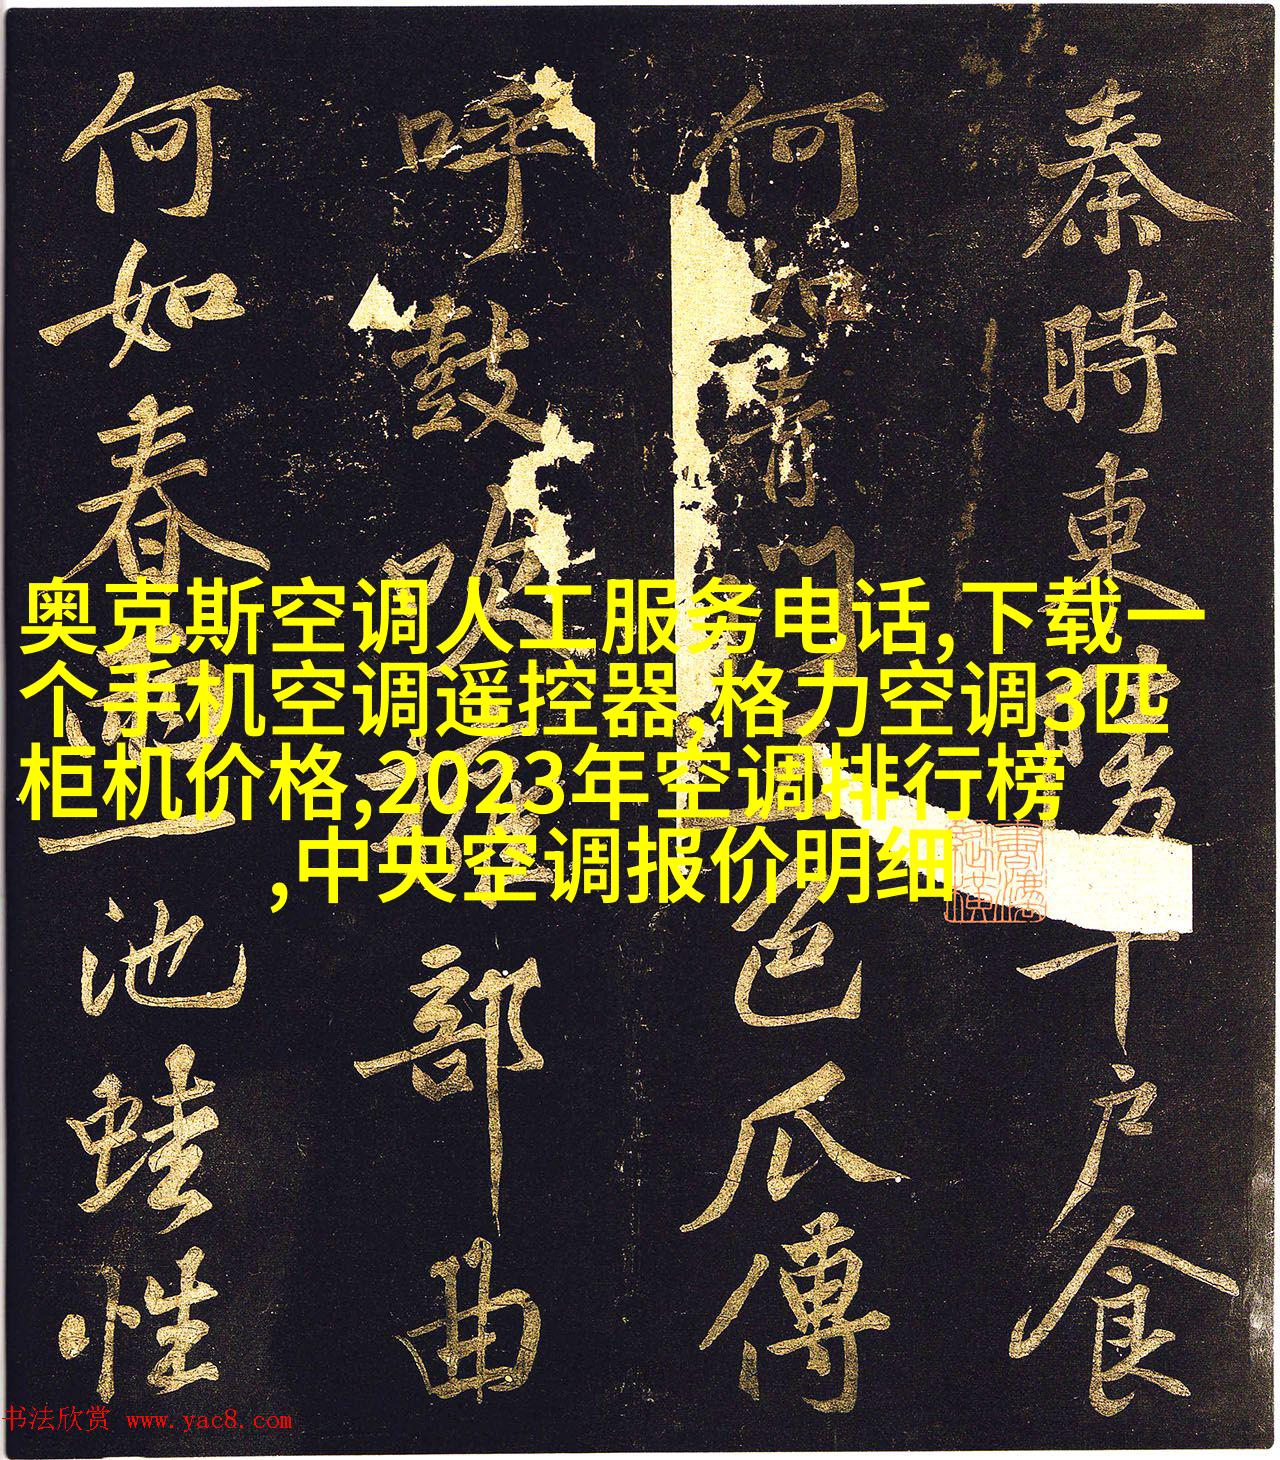 秦時東陵千户食
何如青門色瓜傳
呼鼓吹部曲
何如春一池蛙性
奥克斯空调人工服务电话,下载一
个手机空调遥控器,格力空调3匹
柜机价格,2023年空调排行榜
,中央空调报价明细
书法欣赏 www.yac8.com